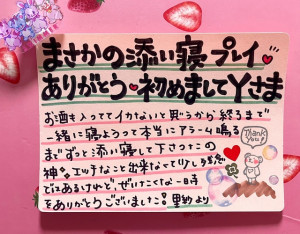 まさかの添い寝プレイ
ありがとう♥初めましてYさま
お酒も入っててイカないと思うから終るまで
一緒に寝ようって本当にアラーム鳴る
まずっと添い寝して下さったこの
神。エッチなこと出来なくて少し
ではあるけれど、ぜいたくな一時
をありがとうございました!里紗より
Thank You!